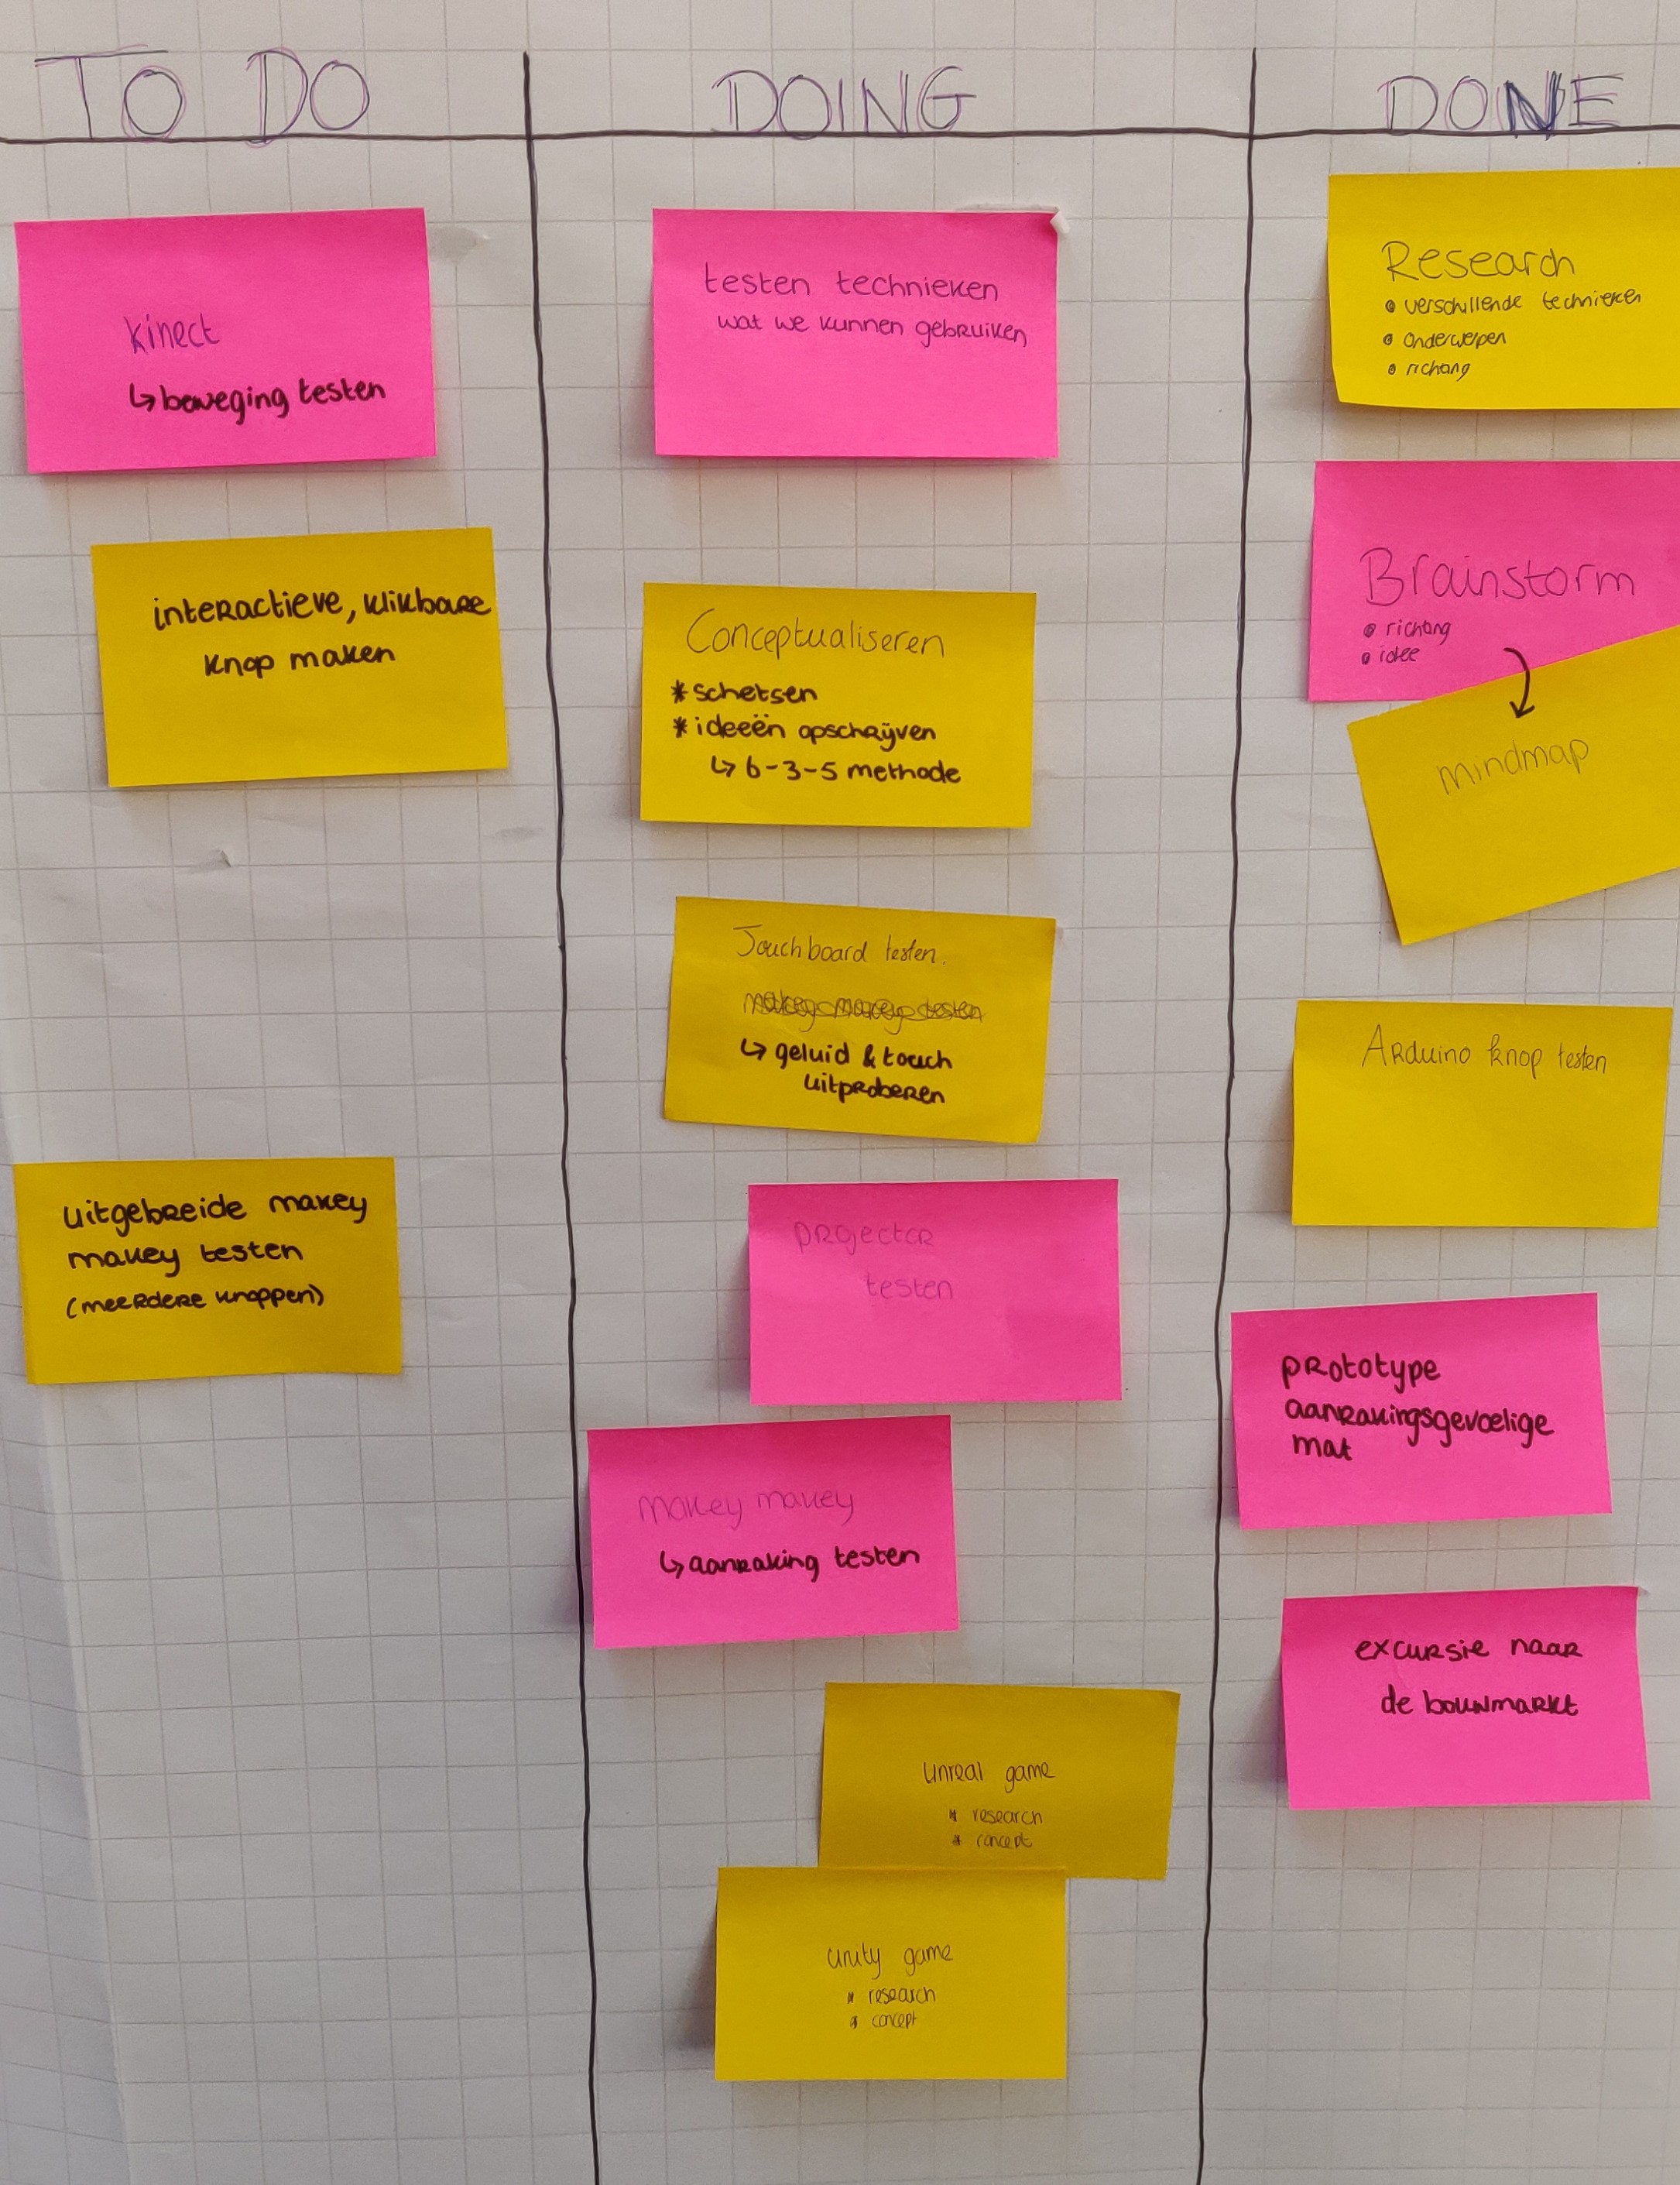 TO DO
kinect
↳ beweging testen
interactieve, klikbare
knop maken
uitgebreide makey
makey testen
(meerdere knoppen)
DOING
testen technieken
wat we kunnen gebruiken
Conceptualiseren
* schetsen
* ideeën opschrijven
↳ 6-3-5 methode
Touchboard testen.
makey makey testen
↳ geluid & touch
uitproberen
projector
testen
makey makey
↳ aanraking testen
unreal game
* research
* concept
unity game
* research
* concept
DONE
Research
• verschillende technieken
• onderwerpen
• richting
Brainstorm
• richting
• idee
mindmap
Arduino knop testen
prototype
aanrakingsgevoelige
mat
excursie naar
de bouwmarkt